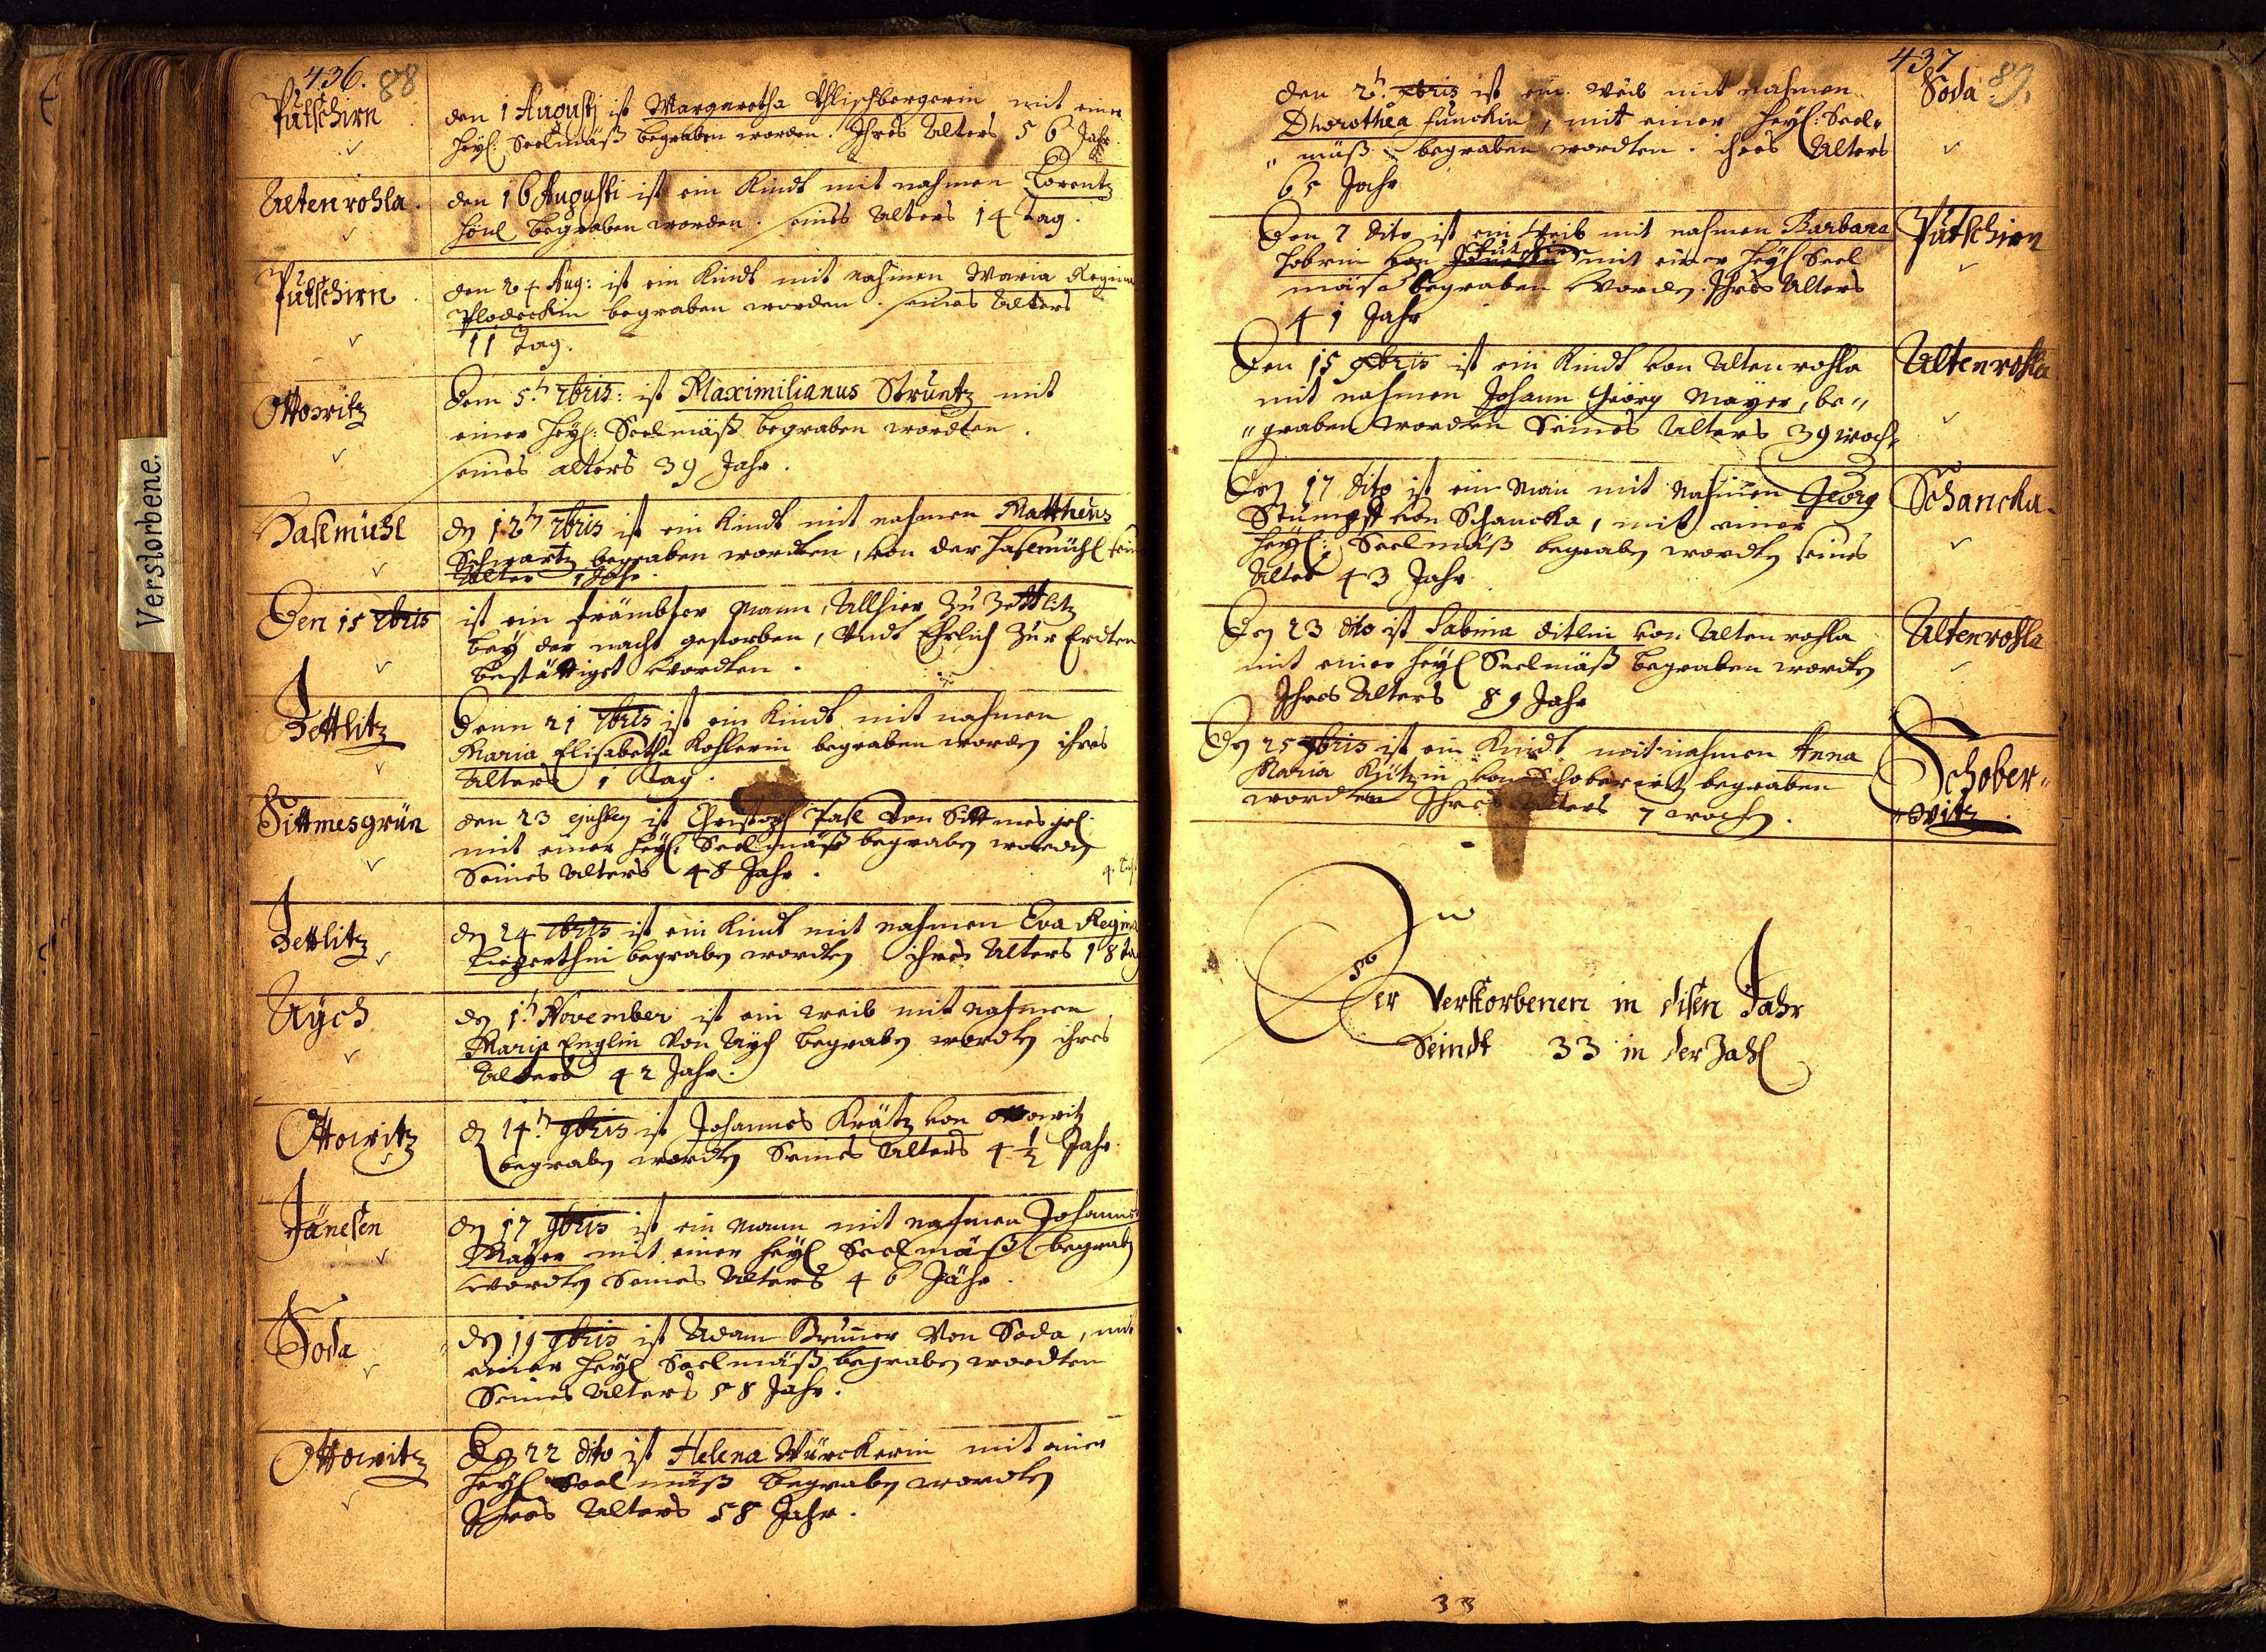 436. 88
Putschirn
den 1 Augusti ist Margaretha mit einer
Heyl: Seelmäß begraben worden. Ihres Alters 56 Jahr.
Alten rohla.
den 16 Augusti ist ein Kindt mit nahmen Lorentz
Heül begraben worden. seines Alters 14 Tag.
Putschirn
den 24 Aug: ist ein Kindt mit nahmen Maria Regina
Plodeckin begraben worden. seines Alters
11 Tag.
Ottowitz
Dem 5.h 7bris: ist Maximilianus Struntz mit
einer Heyl: Seelmäß begraben wordten.
seines alters 39 Jahr.
Haselmühl
den 12h 7bris ist ein Kindt mit nahmen Mattheus
Schwartz begraben wordten, von der Haselmühl sein
Alter 1 Jahr.
Den 15 7bris
ist ein främbter Mann, Allhier Zu Zettlitz
bey der nacht gestorben, Undt Ehrlich Zur Erdten
bestättiget wordten.
Zettlitz
Denn 21 7bris ist ein Kindt mit nahmen
Maria Elisabetha Kohlerin begraben worden ihres
Alters 1 Tag.
Sittmesgrün
den 23 ist Christoph Pasl Von
mit einer Heyl: Seelmäß begraben worden
Seines Alters 48 Jahr.
Zettlitz
den 24 7bris ist ein Kindt mit nahmen Eva Regina
begraben wordten ihres Alters 18 tag
Aÿch
den 1.h November ist ein weib mit nahmen
Maria Englin Von Aÿch begraben wordten ihres
Alters 42 Jahr.
Ottowitz
den 14.h 9bris ist Johannes Krätz von Ottowitz
begraben wordten Seines Alters 4 ½ Jahr
Jänesen
den 17 9bris ist ein Mann mit nahmen Johannes
Mayer mit einer Heyl Seelmäß begraben
wordten Seines Alters 46 Jahr.
Soda
den 19 9bris ist Adam Bruner Von Soda, mit
einer Heyl Seelmäß begraben wordten
Seines Alters 58 Jahr.
Ottowitz
Den 22 dito ist Helena Würckerin mit einer
Heyl Seel mäß begraben wordten
Ihres Alters 58 Jahr.
Verstorbene.
437 89.
Soda
den 2.h ist ein weib mit nahmen
Dhorothea Funckin, mit einer Heyl: Seel„
„ mäß begraben wordten. ihres Alters
65 Jahr
Putschirn
Den 7 dito ist ein Weib mit nahmen Barbara
von mit einer Heyl Seel
mäse begraben Worden. Ihres Alters
41 Jahr
Altenrohla
Den 15 ist ein Kindt von Altenrohla
mit nahmen Johann Geörg Mayer, be„
„graben wordten Seines Alters 39 woch:
Schancka.
Den 17 dito ist ein Man mit Nahmen Georg
Stumpff von Schancka, mit einer
Heyl: Seelmäß begraben wordten seines
Alter 43 Jahr
Altenrohla
Den 23 dito ist Sabina ditlin von Altenrohla
mit einer Heyl Seelmäß begraben wordten
Ihres Alters 89 Jahr
Schober„
„witz.
Den 25 ist ein Kindt mit nahmen Anna
Maria von Schoberwitz begraben
wordten Ihres Alters 7 wochen.
Der Verstorbenen in disen Jahr
Seindt 33 in der Zahl
33